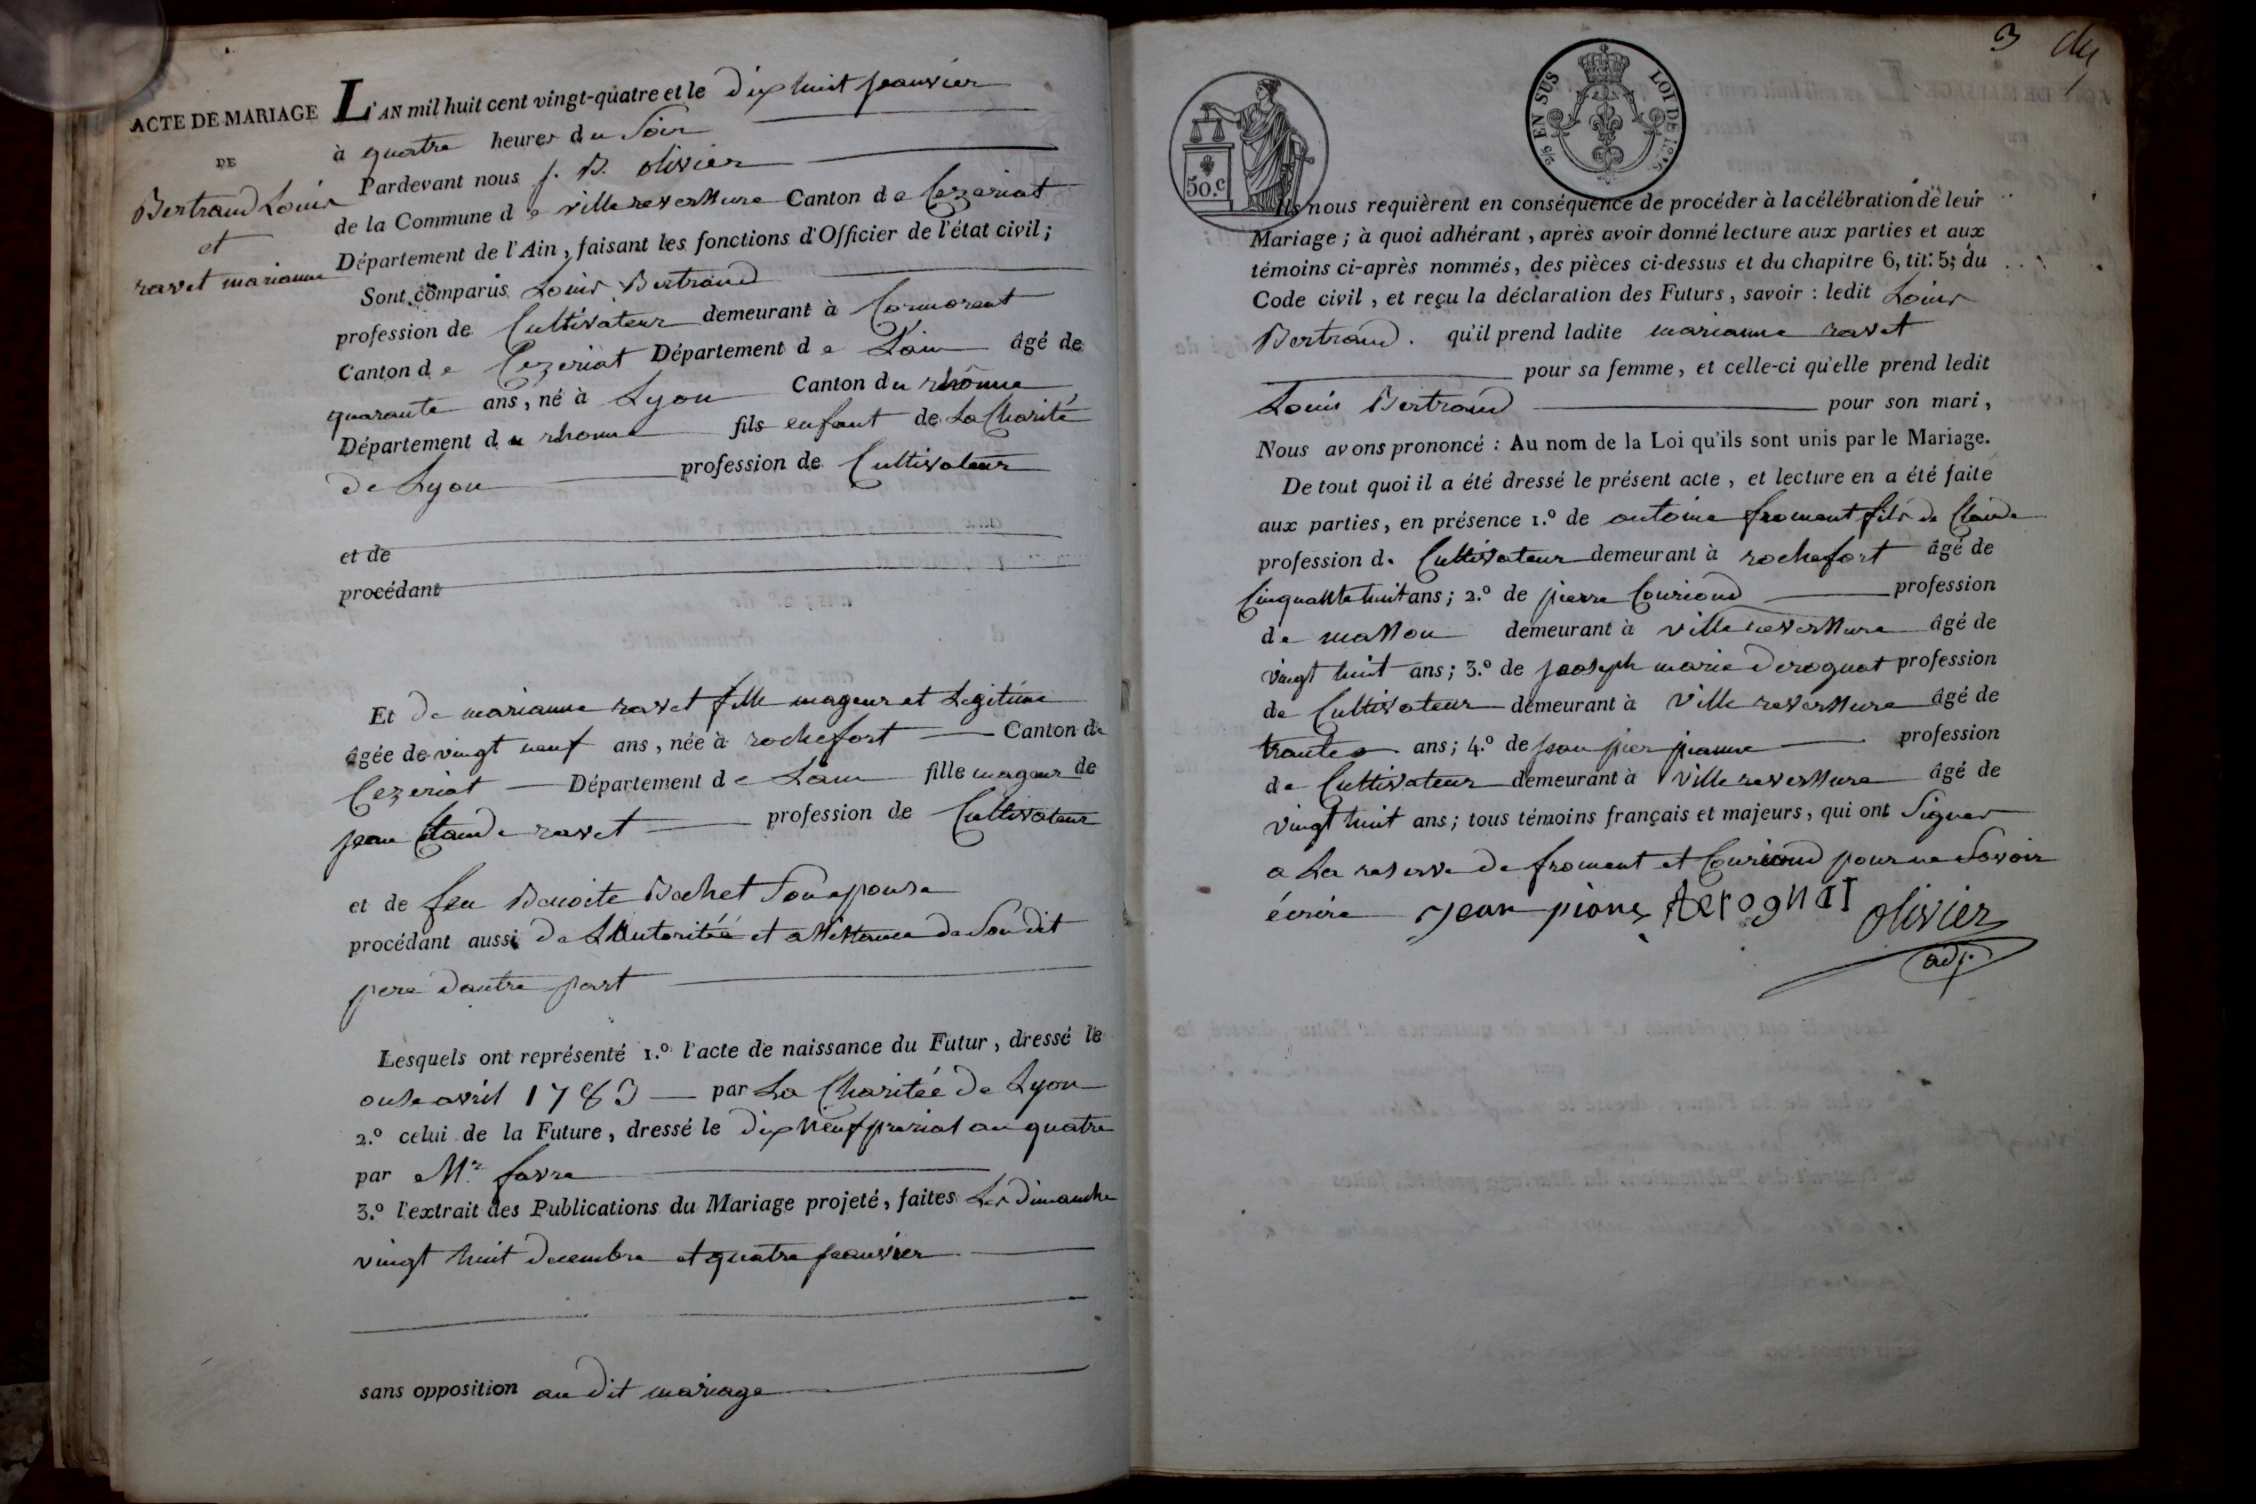 ACTE DE MARIAGE
DE
Bertrand Louis
et
ravet marianne
L'AN mil huit cent vingt-quatre et le dix huit jeanvier
à quatre heures du Soir
Pardevant nous j. B. olivier
de la Commune de villereverssure Canton de Cezeriat
Département de l'Ain, faisant les fonctions d'Officier de l'état civil;
Sont comparus Louis Bertrand
profession de Cultivateur demeurant à Cormorent
Canton de Cezeriat Département de Lain âgé de
quarante ans, né à Lyon Canton du rhônne
Département du rhonne fils enfant de La Charité
de Lyon profession de Cultivateur
et de
procédant
Et de marianne ravet fille mageur et Legitime
âgée de vingt neuf ans, née à rochefort Canton de
Cezeriat Département de Lain fille mageur de
jean Claude ravet profession de Cultivateur
et de feu Benoite Bochet Son epouse
procédant aussi de LAutoritée et assistance de Son dit
pere dautre part
Lesquels ont représenté 1.º l'acte de naissance du Futur, dressé le
onse avril 1783 par La Charitée de Lyon
2.º celui de la Future, dressé le dix neuf prerial an quatre
par Mr. favre
3.º l'extrait des Publications du Mariage projeté, faites Les dimanche
vingt huit decembre et quatre jeanvier
sans opposition au dit mariage
3
50.c
5/6 EN SUS LOI DE 1816
Ils nous requièrent en conséquence de procéder à la célébration de leur
Mariage; à quoi adhérant, après avoir donné lecture aux parties et aux
témoins ci-après nommés, des pièces ci-dessus et du chapitre 6, tit. 5, du
Code civil, et reçu la déclaration des Futurs, savoir: ledit Louis
Bertrand. qu'il prend ladite marianne ravet
pour sa femme, et celle-ci qu'elle prend ledit
Louis Bertrand pour son mari,
Nous avons prononcé: Au nom de la Loi qu'ils sont unis par le Mariage.
De tout quoi il a été dressé le présent acte, et lecture en a été faite
aux parties, en présence 1.º de antoine froment fils de Claude
profession d. Cultivateur demeurant à rochefort âgé de
Cinquante huit ans; 2.º de pierre Couriond profession
de masson demeurant à villereverssure âgé de
vingt huit ans; 3.º de jaoseph marie derognat profession
de Cultivateur demeurant à villereverssure âgé de
trante ans; 4.º de jean pier pianne profession
de Cultivateur demeurant à villereverssure âgé de
vingt huit ans; tous témoins français et majeurs, qui ont Signer
a La reserve de froment et Couriond pour ne Savoir
écrire jean piane derognat olivier
adj.